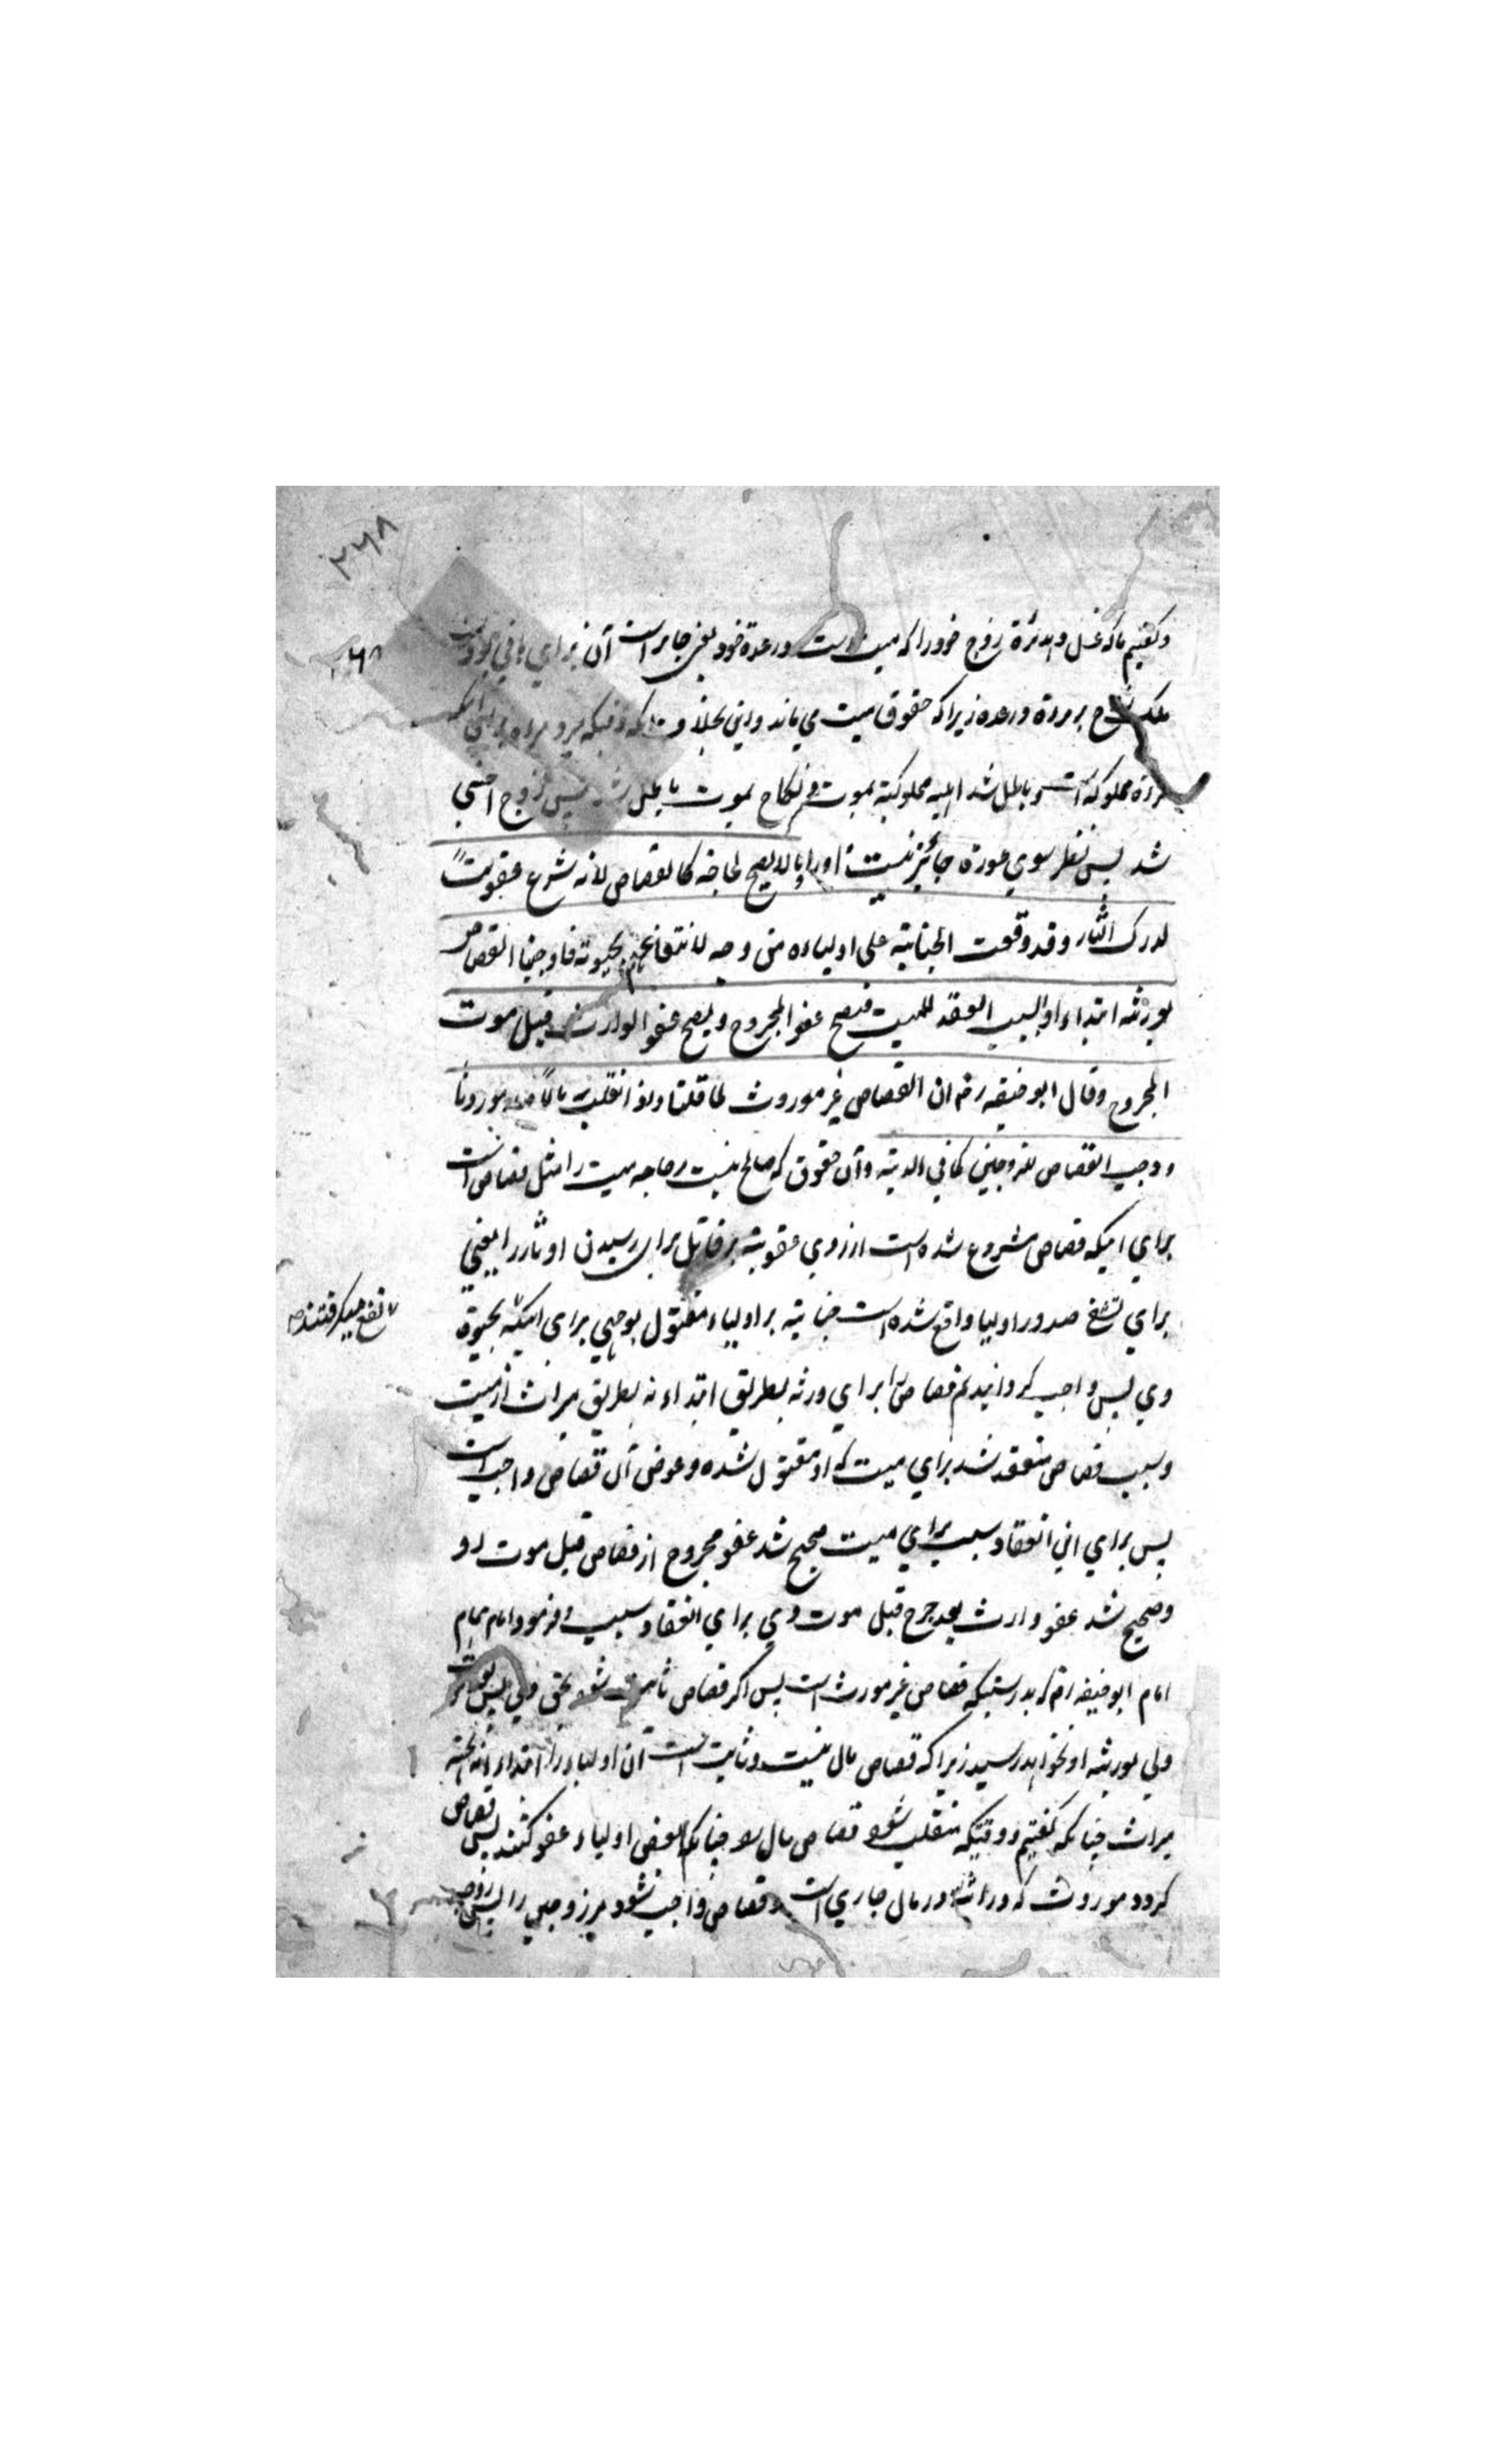 ۲۶۸
۲۶۸
وگفتیم ما که غسل دهد مرأة زوج خود را که میت است در عدة خود یعنی جائز است آن برای باقی بودن
ملک نکاح بر مردة در عده زیرا که حقوق میت می ماند واین بخلاف
مردة مملوکه است و باطل شد اهلیه مملوکیته بموت و نکاح بموت باطل شد پس زوج اجنبی
شد پس نظر سوی عورة جائز نیست اورا ومالا یصلح لحاجته کالقصاص لانه شرع عقوبةً
لدرک الثار وقد وقعت الجنایة علی اولیاءه من وجه لانتفاعهم بحیوته فاوجبنا القصاص
لورثته ابتداء والسبب انعقد للمیت فیصح عفو المجروح ویصح عفو الوارث قبل موت
المجروح وقال ابو حنیفه رح ان القصاص غیر موروث لما قلنا واذا انقلب مالاً صار موروثا
ووجب القصاص للزوجین کما فی الدیة وآن حقوق که صالح نیست حاجه میت را مثل قصاص است
برای اینکه قصاص مشروع شده است از روی عقوبة بر قاتل برای رسیدن او ثار را یعنی
برای تشفی صدور اولیا واقع شده است جنایة بر اولیاء مقتول بوجهی برای اینکه بحیوة
نفع میگرفتند
وی پس واجب گردانیدیم قصاص را برای ورثه بطریق ابتداء نه بطریق میراث از میت
وسبب قصاص منعقد شد برای میت که او مقتول شده وعوض آن قصاص واجب است
پس برای این انعقاد سبب برای میت صحیح شد عفو مجروح از قصاص قبل موت او
وصحیح شد عفو وارث بعد جرح قبل موت وی برای انعقاد سبب وفرمود امام همام
امام ابو حنیفه رح که بدرستیکه قصاص غیر مورث است پس اگر قصاص ثابت شود بحق ولی پس بموت
ولی بورثه او نخواهد رسید زیرا که قصاص مال نیست وثابت است آن اولیاء را ابتداء نه بجهة
میراث چنانکه گفتیم ووقتیکه منقلب شود قصاص مال چنانکه بعض اولیاء عفو کنند پس قصاص
گردد موروث که وراثة در مال جاری است وقصاص واجب شود مر زوجین را پس زوجه